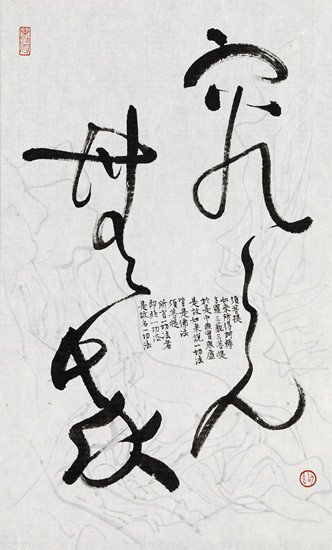 究竟
無我
須菩提
如來所得阿耨
多羅三藐三菩提
於是中無實無虛
是故如來說一切法
皆是佛法
須菩提
所言一切法者
即非一切法
是故名一切法